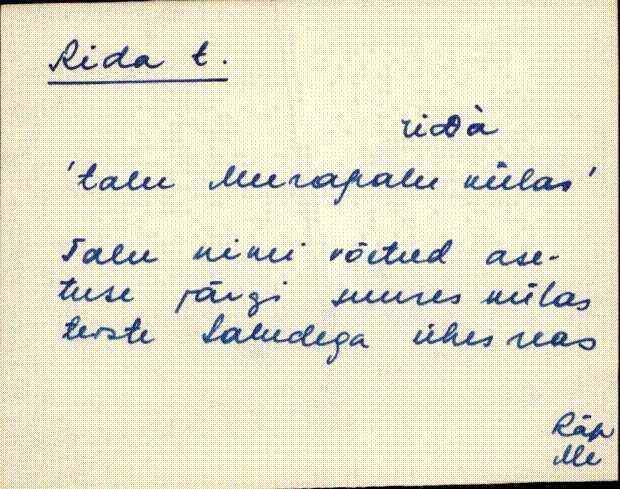 Rida t.
riDà
'talu Meerapalu külas'
Talu nimi võetud ase-
tuse järgi suures külas
teiste taludega ühes reas
Räp
Me